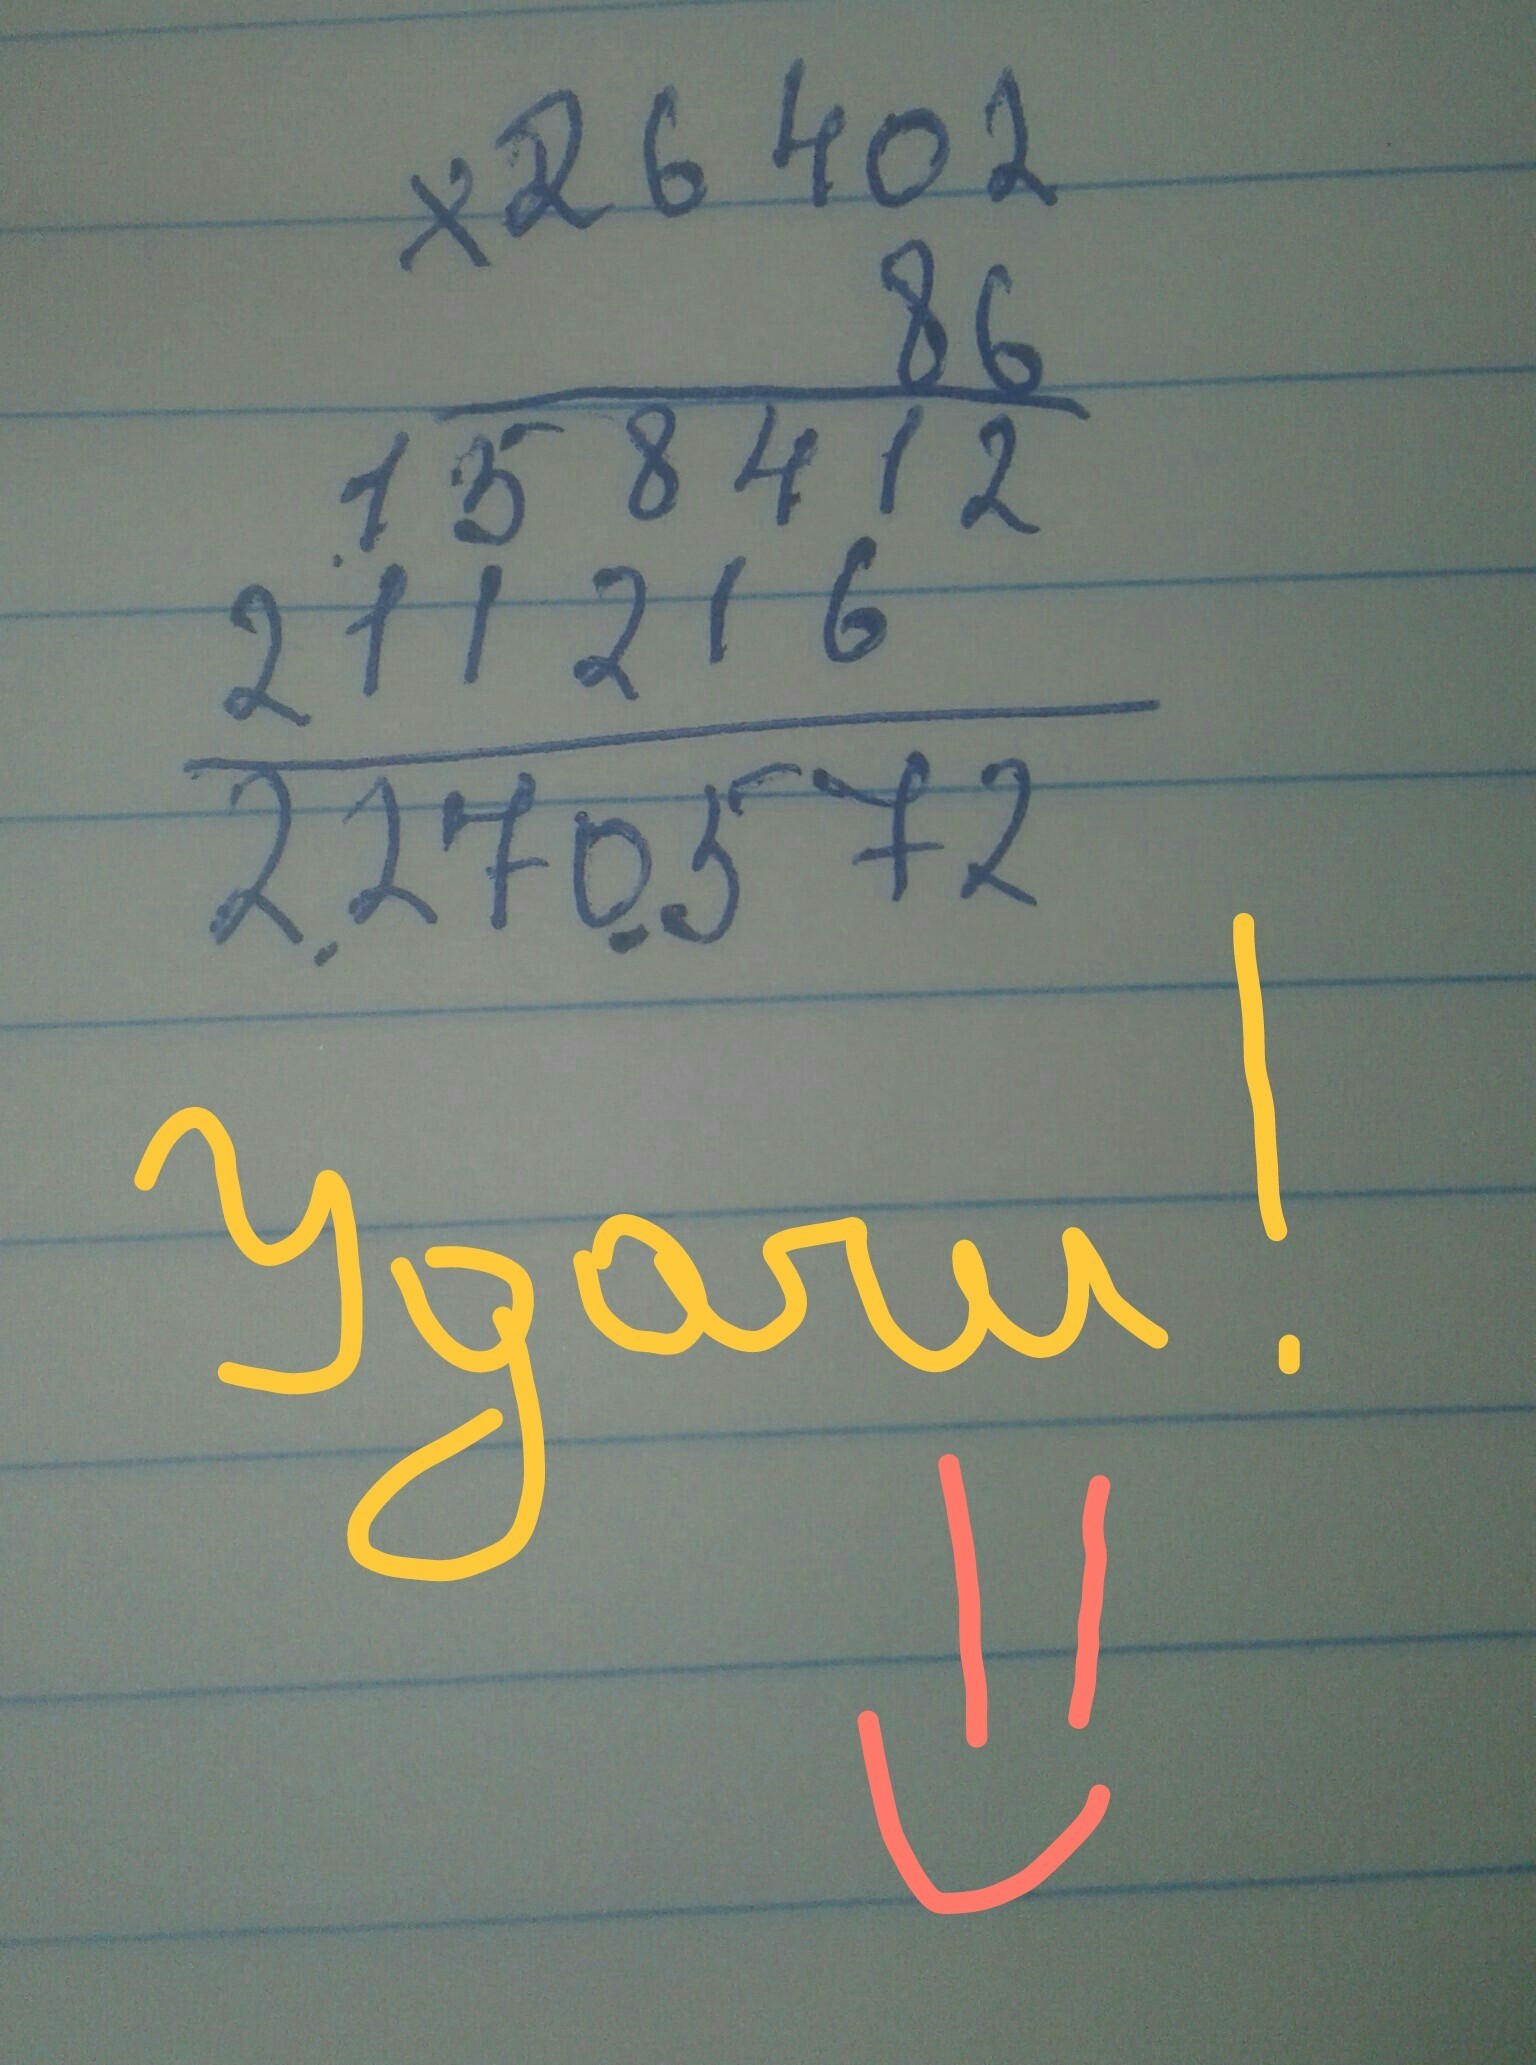 ×26402
86
158412
211216
2270572
Удачи!